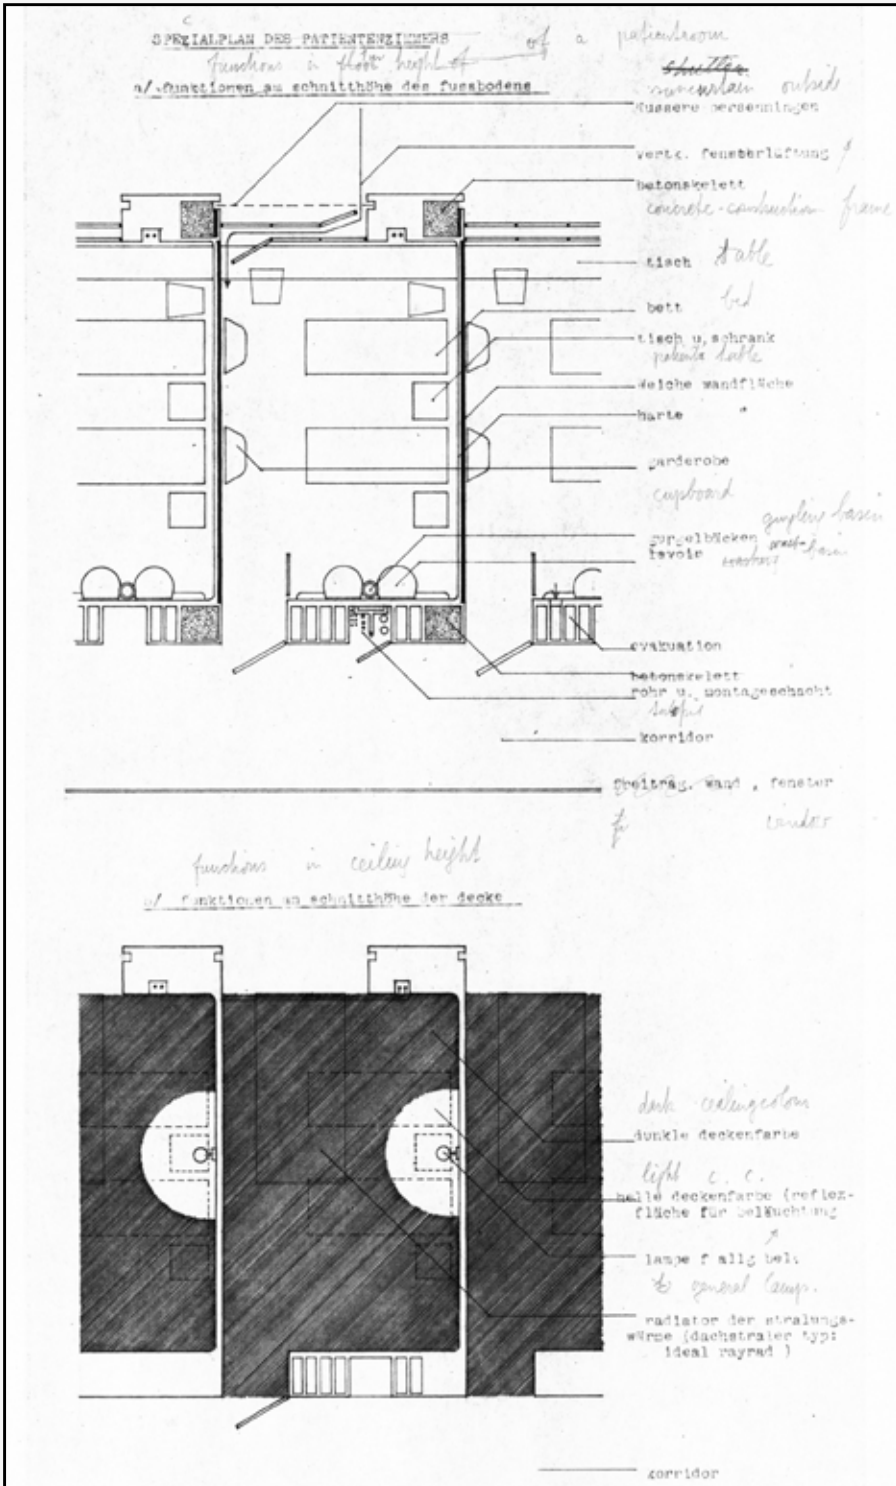 SPEZIALPLAN DES PATIENTENZIMMERS
of a patientroom
functions in floor height of
a/ funktionen am schnitthöhe des fussbodens
shutter
suncurtain outside
äussere persenningen
vertk. fensterlüftung
betonskelett
concrete-construction frame
tisch table
bed
bett
tisch u. schrank
patients table
weiche wandfläche
harte "
garderobe
cupboard
gurgling basin
gurgelbäcken
lavoir washing basin
evakuation
betonskelett
rohr u. montageschacht
korridor
freitrag. wand , fenster
window
functions in ceiling height
b/ funktionen am schnitthöhe der decke
dark ceilingcolour
dunkle deckenfarbe
light c. c.
helle deckenfarbe (reflex-
fläche für beläuchtung
lampe f allg bel.
general lamp.
radiator der stralungs-
wärme (dachstraler typ:
ideal rayrad )
korridor